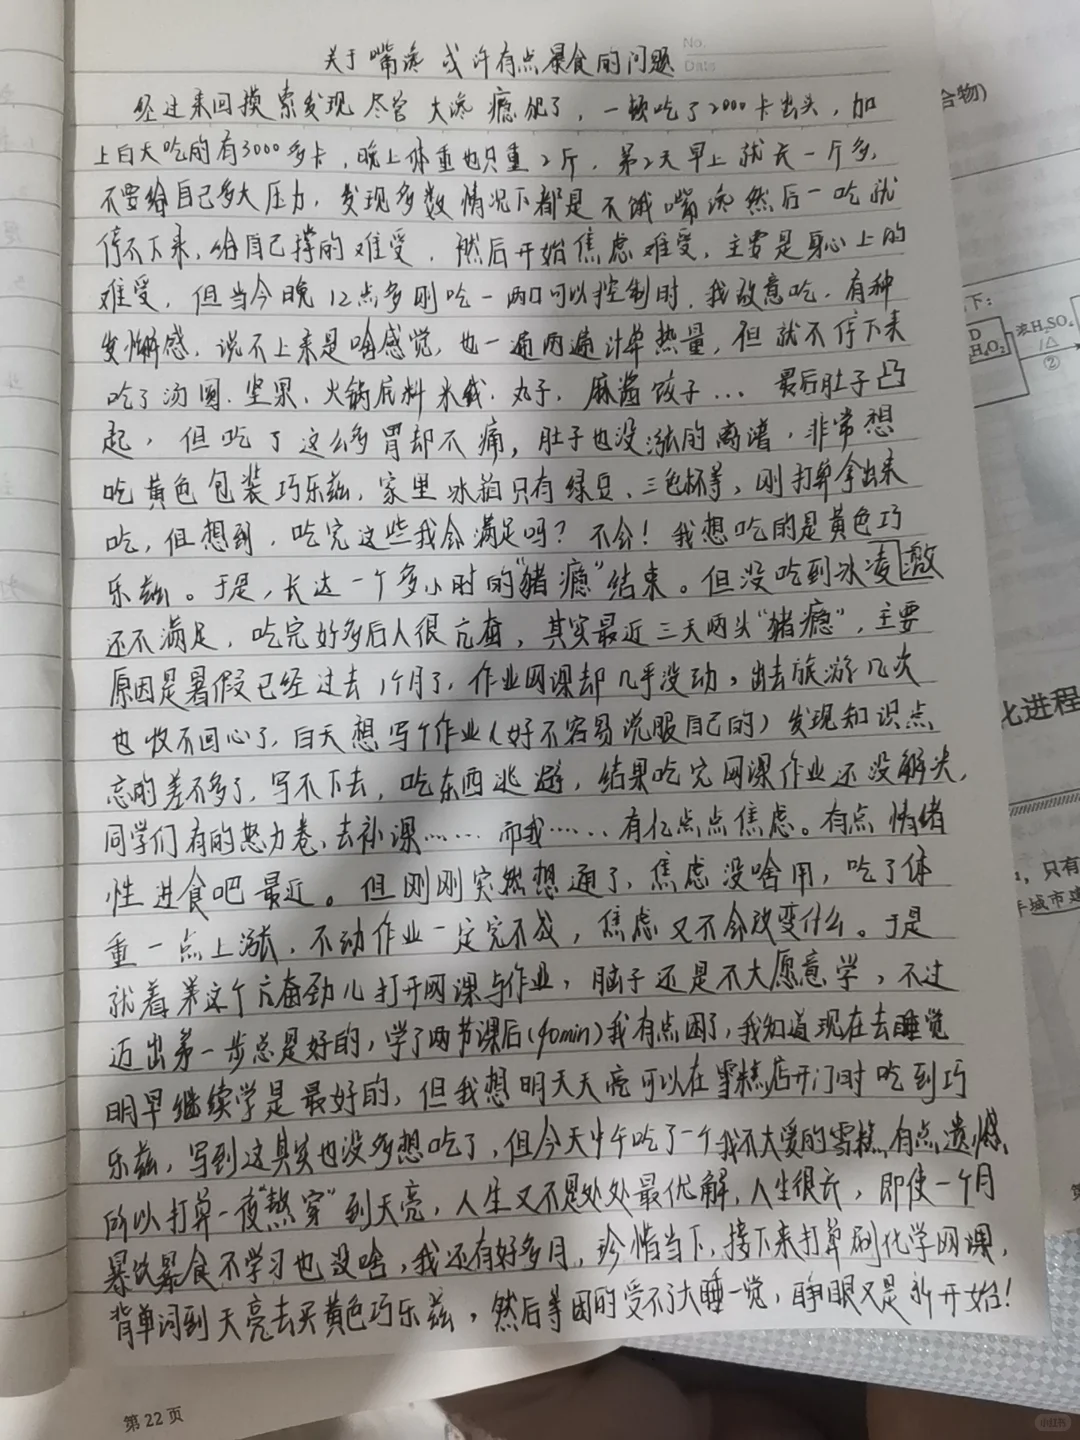 No.
Date
关于嘴馋或许有点暴食的问题
经过来回摸索发现尽管大馋瘾犯了，一顿吃了2000卡出头，加
上白天吃的有3000多卡，晚上体重也只重2斤，第2天早上就去一斤多，
不要给自己多大压力，发现多数情况下都是不饿嘴馋然后一吃就
停不下来，给自己撑的难受，然后开始焦虑难受，主要是身心上的
难受，但当今晚12点多刚吃一两口可以控制时，我故意吃，有种
发懈感，说不上来是啥感觉，也一遍两遍计算热量，但就不停下来
吃了汤圆、坚果、火锅底料米线、丸子、麻酱饺子… 最后肚子凸
起，但吃了这么多胃却不痛，肚子也没涨的离谱，非常想
吃黄色包装巧乐兹，家里冰箱只有绿豆、三色杯等，刚打算拿出来
吃，但想到，吃完这些我会满足吗？不会！我想吃的是黄色巧
乐兹。于是，长达一个多小时的“猪瘾”结束。但没吃到冰凌激
还不满足，吃完好多后人很亢奋，其实最近三天两头“猪瘾”，主要
原因是暑假已经过去1个月了，作业网课却几乎没动，出去旅游几次
也收不回心了，白天想写个作业（好不容易说服自己的）发现知识点
忘的差不多了，写不下去，吃东西逃避，结果吃完网课作业还没解决，
同学们有的努力卷，去补课…… 而我……有亿点点焦虑。有点情绪
性进食吧最近。但刚刚突然想通了，焦虑没啥用，吃了体
重一点上涨，不动作业一定完不成，焦虑又不会改变什么。于是
就着着这个亢奋劲儿打开网课与作业，脑子还是不大愿意学，不过
迈出第一步总是好的，学了两节课后(40min)我有点困了，我知道现在去睡觉
明早继续学是最好的，但我想明天天亮可以在雪糕店开门时吃到巧
乐兹，写到这其实也没多想吃了，但今天中午吃了一个我不大爱的雪糕，有点遗憾，
所以打算一夜“熬穿”到天亮，人生又不是处处最优解，人生很长，即使一个月
暴饮暴食不学习也没啥，我还有好多月，珍惜当下，接下来打算刷化学网课，
背单词到天亮去买黄色巧乐兹，然后等困的受不了大睡一觉，睁眼又是新开始！
第22页
合物)
下：
D
H₂O₂
浓H₂SO₄
△
②
比进程
，只有
小红书